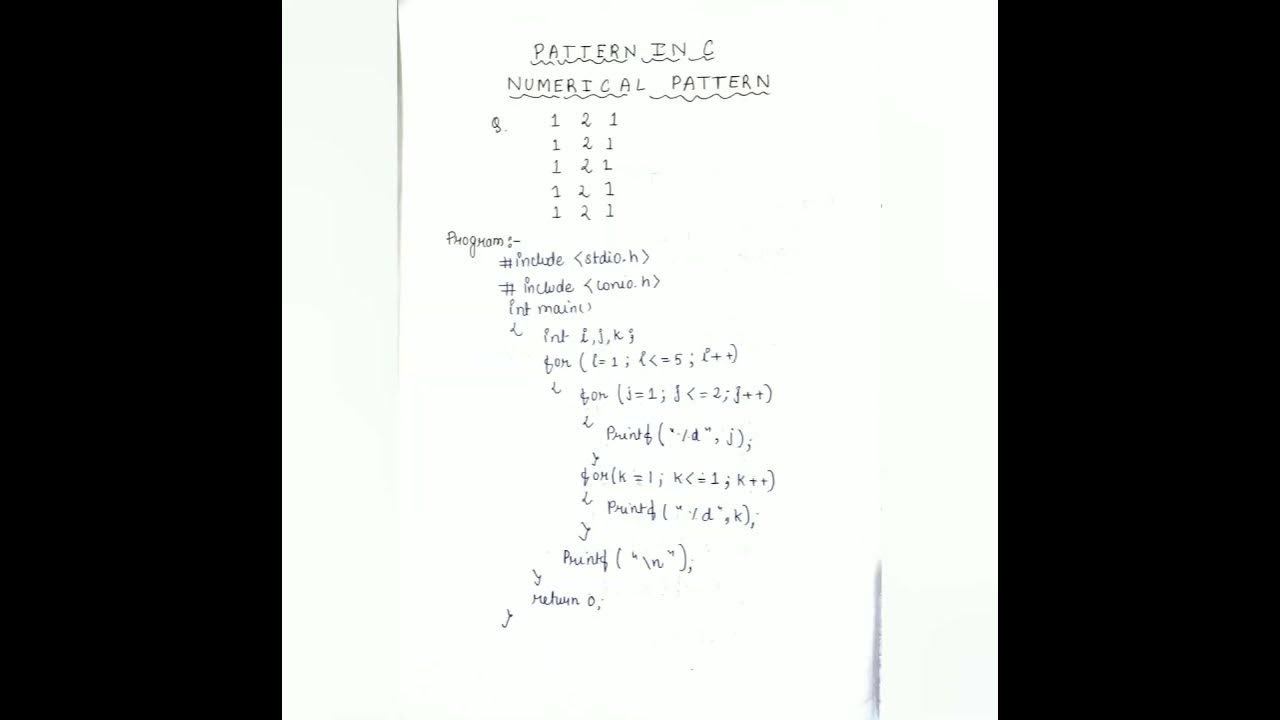 PATTERN IN C
NUMERICAL PATTERN
Q. 1 2 1
1 2 1
1 2 1
1 2 1
1 2 1
Program:-
#include <stdio.h>
# include <conio.h>
int main()
{ int i,j,k;
for (i=1; i<=5; i++)
{ for (j=1; j<=2; j++)
{ Printf("%d", j);
}
for(k=1; k<=1; k++)
{ Printf("%d", k);
}
Printf("\n");
}
return 0;
}